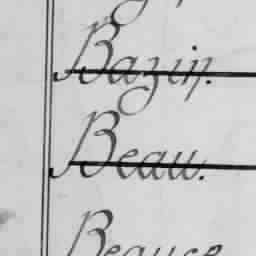 Bazin.
Beau.
Beauce